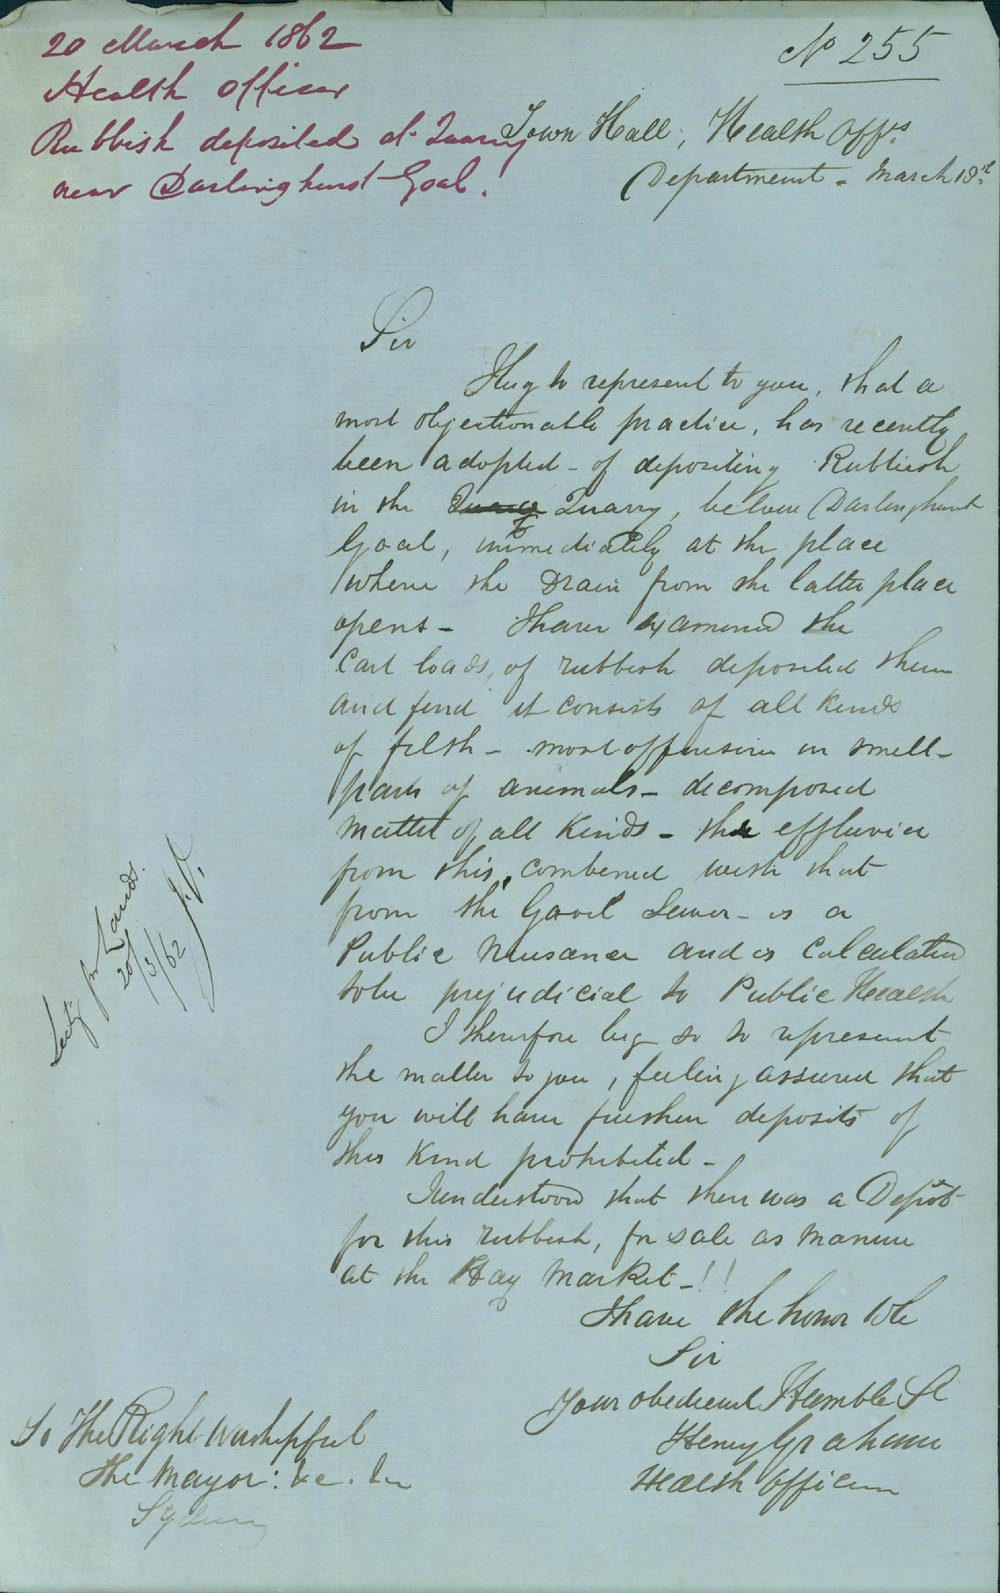 20 March 1862
Health Officer
Rubbish deposited at Quarry
near Darlinghurst Goal.
No 255
Town Hall, Health Offrs
Department - March 18th
Sir
I beg to represent to you, that a
most objectionable practice, has recently
been adopted - of depositing Rubbish
in the Quarry, below Darlinghurst
Goal, immediately at the place
where the Drain from the latter place
opens - I have examined the
Cart loads, of rubbish deposited there
and find it consists of all kinds
of filth - most offensive in smell -
parts of animals - decomposed
matter of all kinds - the effluvia
from this, combined with that
from the Gaol Sewer - is a
Public Nuisance and is Calculated
to be prejudicial to Public Health
I therefore beg so to represent
the matter to you, feeling assured that
you will have further deposits of
this kind prohibited -
I understood that there was a Depôt
for this rubbish, for sale as manure
at the Hay Market - !!
I have the honor to be
Sir
Your obedient Humble St
Henry Graham
Health Officer
To The Right Worshipful
The Mayor: &c. &c
Sydney
for Lands.
20/3/62